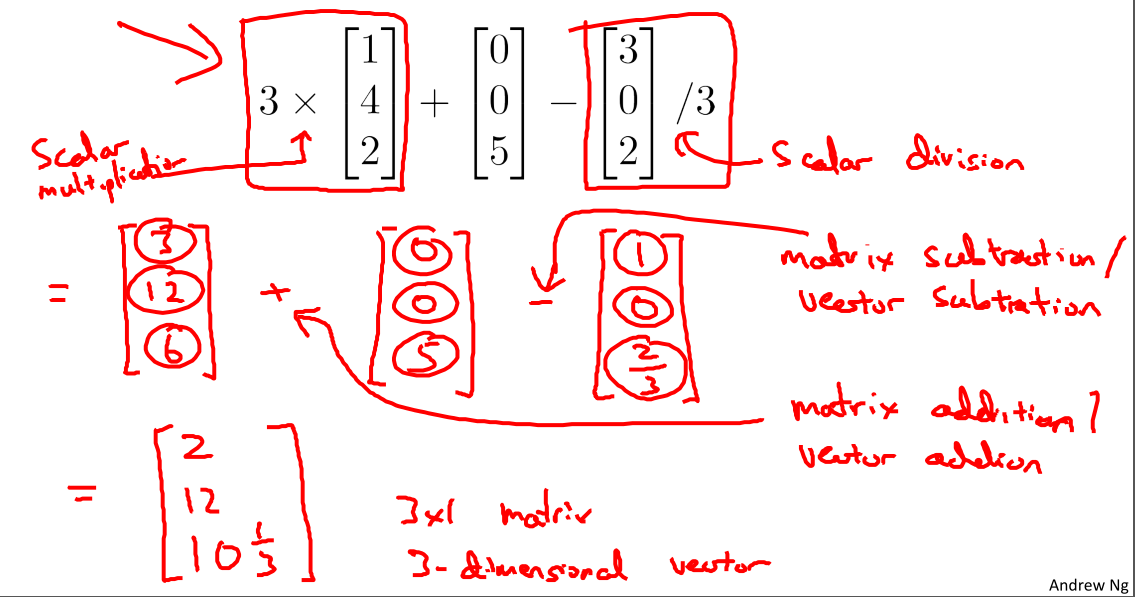 3 × [1 4 2] + [0 0 5] − [3 0 2] /3
Scalar
multiplication
Scalar division
= [3 12 6] + [0 0 5] - [1 0 2/3]
matrix subtraction /
vector subtration
matrix addition /
vector addion
= [2 12 10 1/3]
3x1 matrix
3-dimensional vector
Andrew Ng